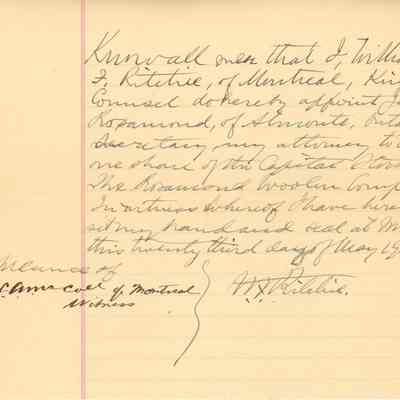 Know all men that I, Willia
F. Ritchie, of Montreal, Kin
Counsel do hereby appoint Ja
Rosamond, of Almonte, Onta
Secretary my attorney to
one share of the Capital Stock
The Rosamond Woolen Comp
In witness whereof I have here
set my hand and seal at M
this twenty third day of May 19
of
of Montreal
Witness
W.F. Ritchie.